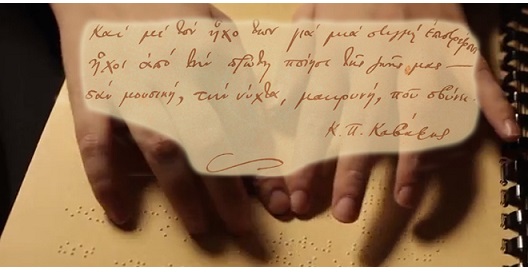 Καί μέ τόν ἦχο των γιά μιά στιγμή ἐπιστρέφουν
ἦχοι ἀπό τήν πρώτη ποίησι τῆς ζωῆς μας —
σάν μουσική, τήν νύχτα, μακρυνή, πού σβύνει.
Κ. Π. Καβάφης